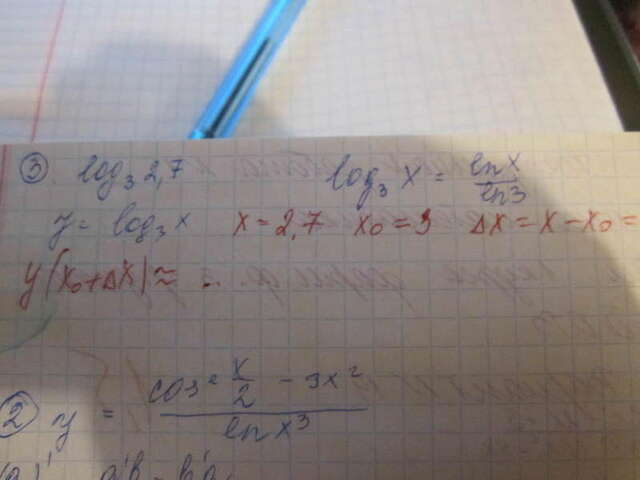 ③ log₃ 2,7 log₃ x = ln x / ln 3
y = log₃ x x = 2,7 x₀ = 3 Δx = x – x₀ =
y(x₀ + Δx) ≈ ..
② y = cos² x/2 – 3x² / ln x³
a'b – b'a